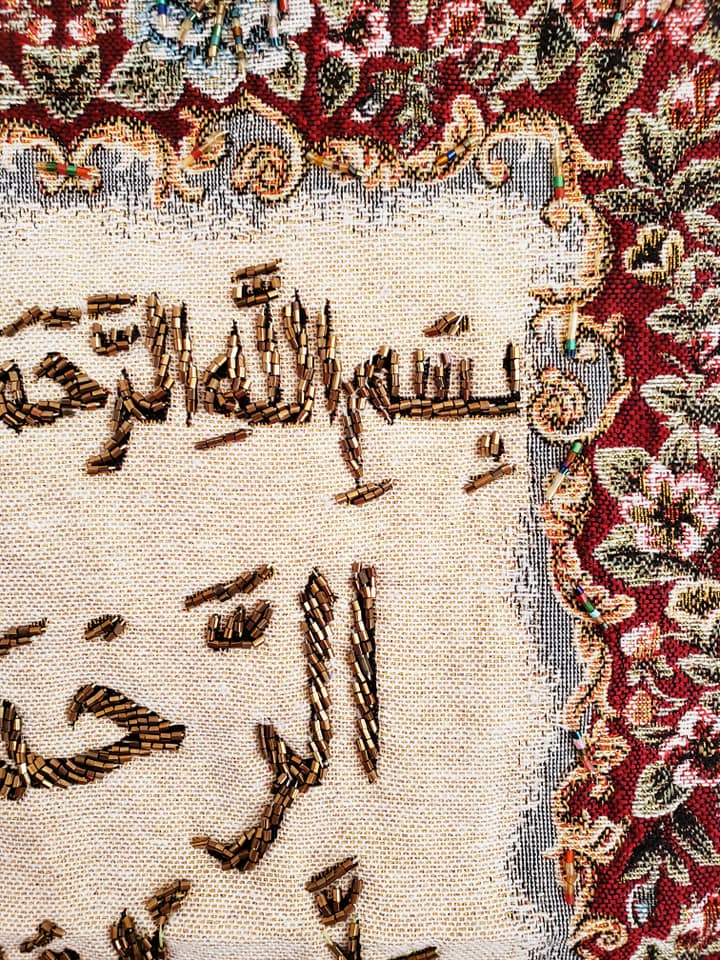 بِسمِ اللَّهِ الرَّحمـ
الرَّحـ